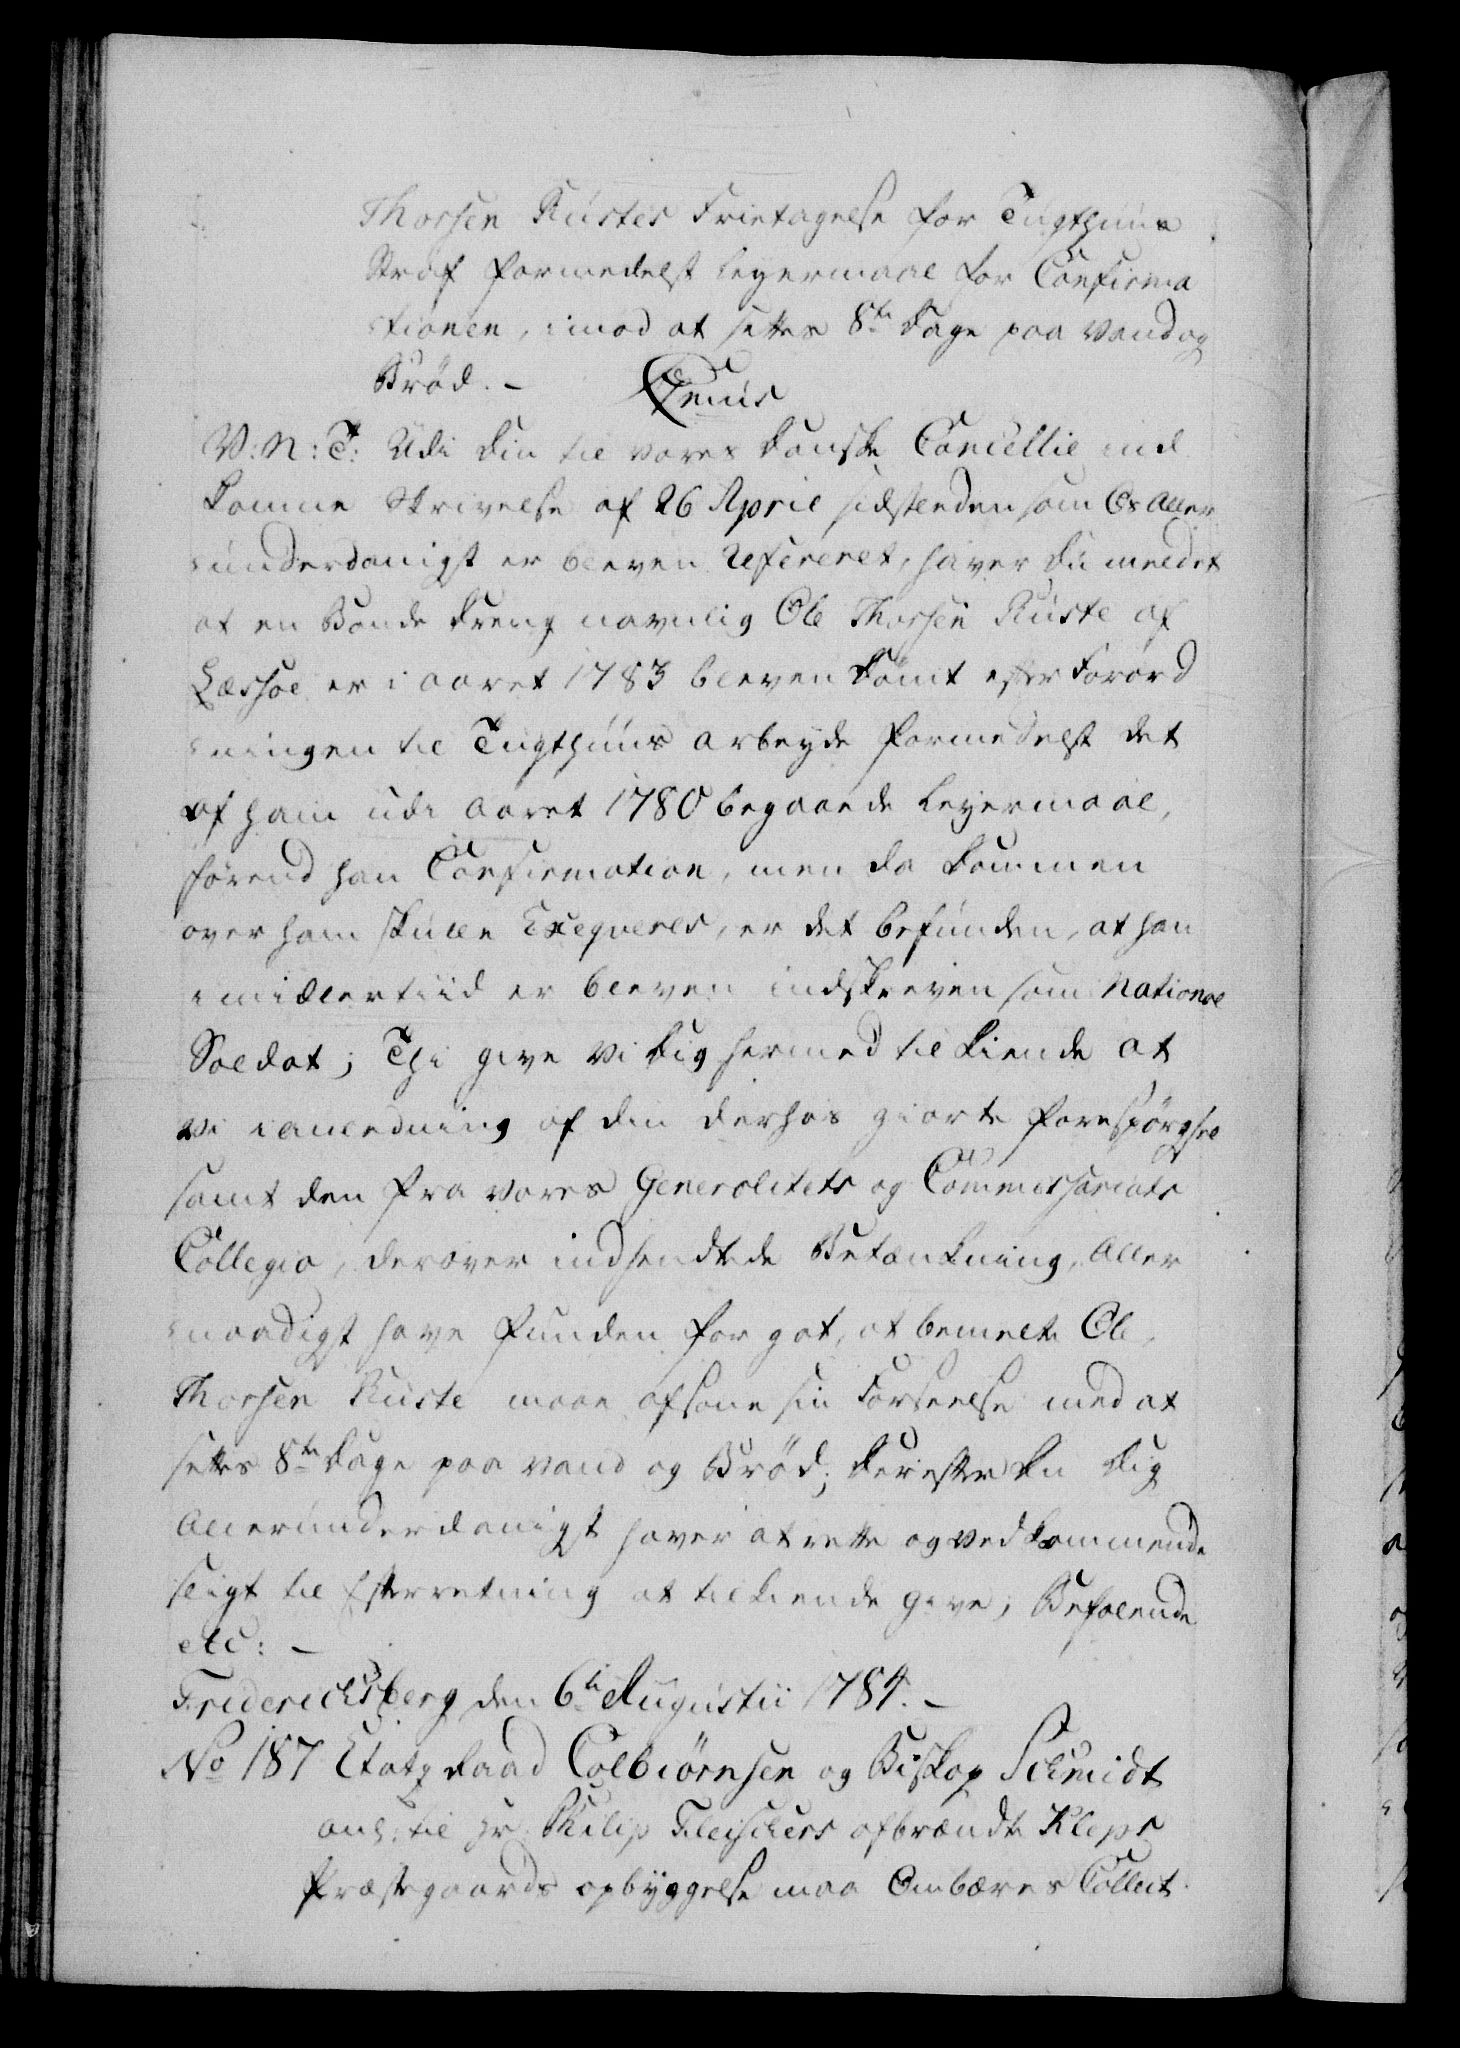 Thorsen Rustes Frietagelse for Tugthuus
Straf formedelst Leyermaal for Confirma
tionen, imod at settes 8te Dage paa Vand og
Brød. -
V: N: T: Udi din til vores danske Cancellie ind
komne Skrivelse af 26 April sidstleden som Os Aller
underdanigst er bleven Refereret, haver du meldet
at en Bonde Dreng navnlig Ole Thorsen Ruste af
Læssøe er i aaret 1783 bleven dømt efter Forord
ningen til Tugthuus arbeyde formedelst det
af ham udi aaret 1780 begaaede Leyermaal,
førend han Confirmation, men da Dommen
over ham skulle Exeqveres, er det befunden, at han
imidlertiid er bleven indskreven som National
Soldat; Thi give Vi dig hermed til kiende at
Vi i anledning af din derhos giorte forespørgsel
samt den fra vores Generalitets og Commissariats
Collegio, derover indsendte Betænkning, Aller
naadigst have funden for got, at bemelte Ole
Thorsen Ruste maae afsone sin Forseelse med at
settes 8te Dage paa Vand og Brød; derefter du dig
Allerunderdanigst haver at rette og vedkommende
sligt til Efterretning at tilkiende give; Befalende
etc: -
Friderichsberg den 6te Augustii 1784. -
No 187 Etatz Raad Colbiørnsen og Biskop Schmidt
anl: til Hr. Philip Fleischers afbrændte Kleps
Præstegaards opbyggelse maa Ombæres Collect.